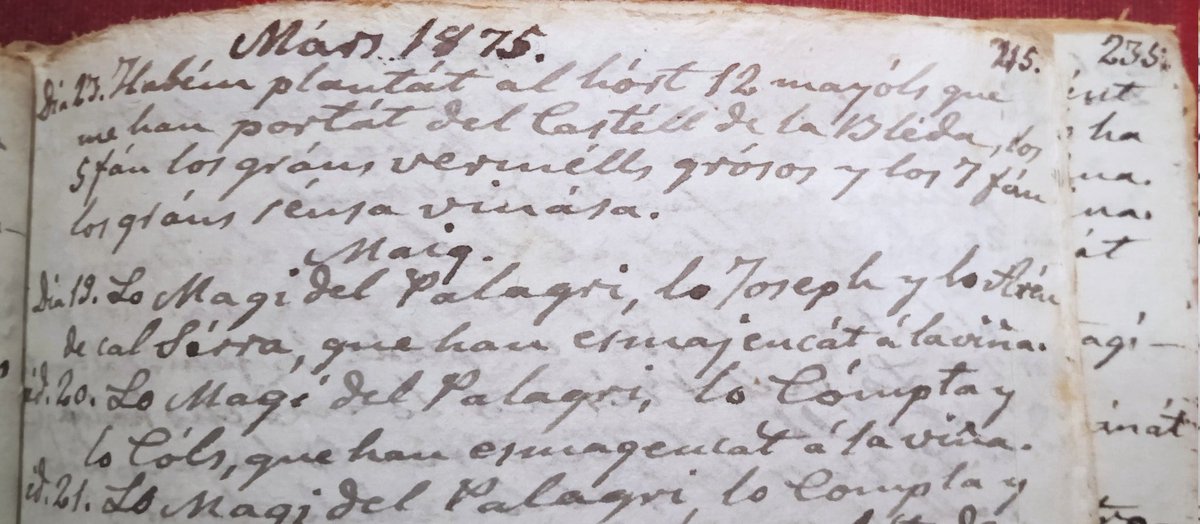 Márs 1875.
245.
Dia 23. Habém plantát al hórt 12 mayóls que
me han portát del Castéll de la Bléda, los
5 fán los gráns vermélls grósos y los 7 fán
los gráns sénsa vinása.
Maig.
Dia 19. Lo Magí del Palagri, lo Joseph y lo
de cal Sérra, que han esmajencát á la viña.
id. 20. Lo Magí del Palagri, lo Cómpta y
lo Cóls, que han esmagencát á la viña.
id. 21. Lo Magi del Palagri, lo Compta y
235.
ha